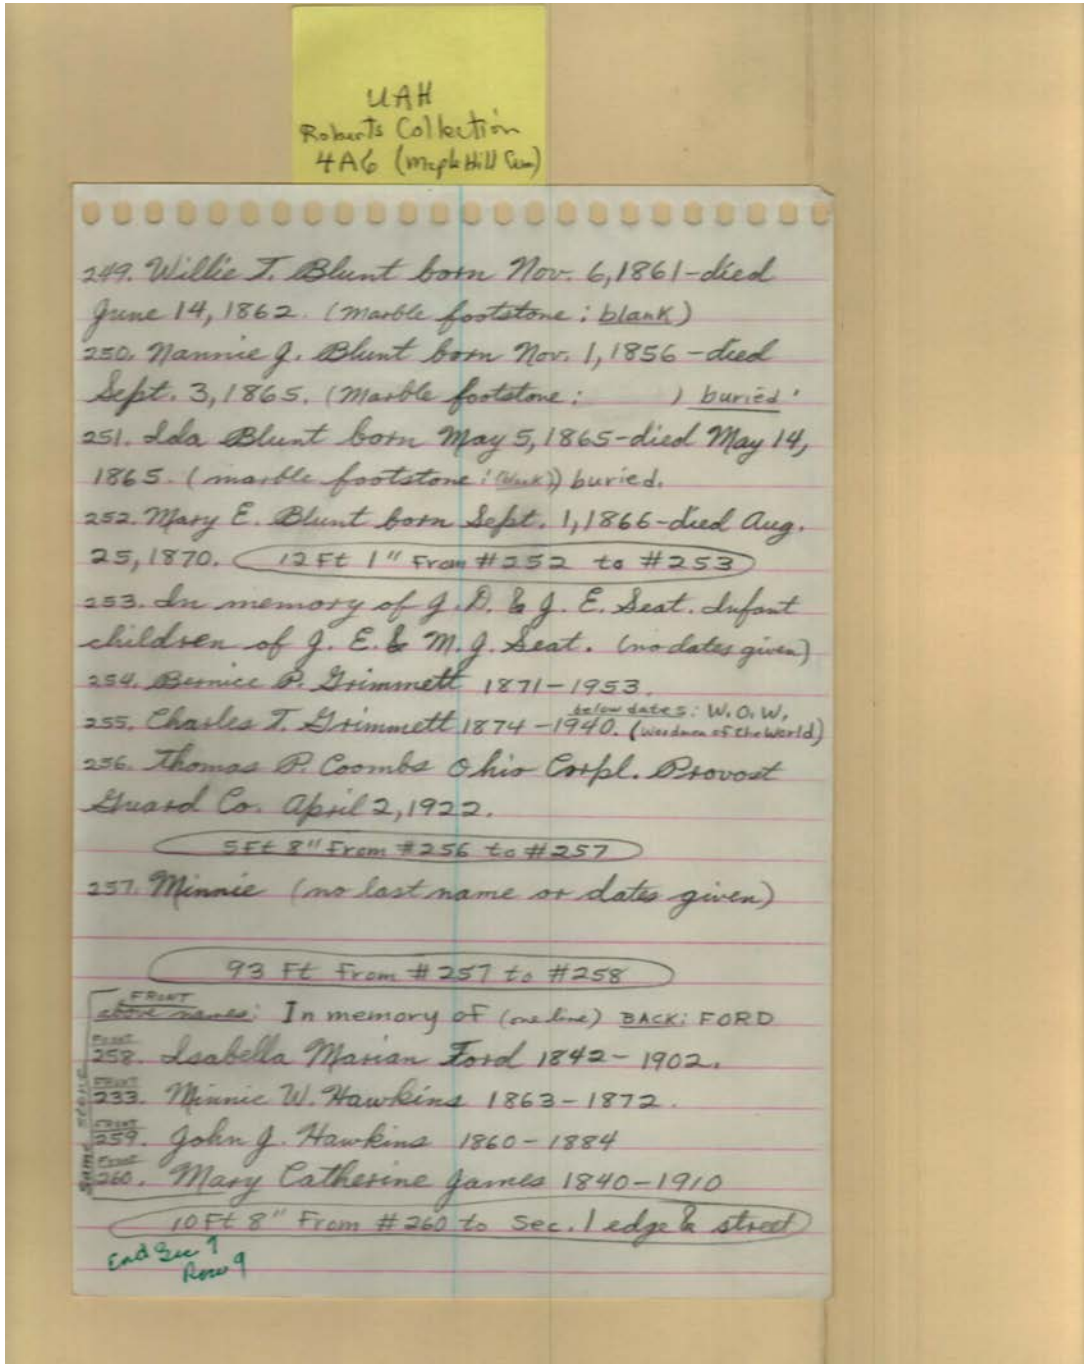 UAH
Roberts Collection
4A6 (Maple Hill Cem)
249. Willie T. Blunt born Nov. 6, 1861-died
June 14, 1862. (Marble footstone: blank)
250. Nannie J. Blunt born Nov. 1, 1856-died
Sept. 3, 1865. (Marble footstone: ) buried.
251. Ida Blunt born May 5, 1865-died May 14,
1865. (marble footstone: (blank)) buried.
252. Mary E. Blunt born Sept. 1, 1866-died Aug.
25, 1870. 12 Ft 1" From #252 to #253
253. In memory of J. D. & J. E. Seat. Infant
children of J. E. & M. J. Seat. (no dates given)
254. Bernice P. Grimmett 1871-1953.
below dates: W.O.W.
255. Charles T. Grimmett 1874-1940. (Woodmen of the World)
256. Thomas P. Coombs Ohio Corpl. Provost
Guard Co. April 2, 1922.
5 Ft 8" From #256 to #257
257. Minnie (no last name or dates given)
93 Ft From #257 to #258
FRONT
above names: In memory of (one line) BACK: FORD
Front
258. Isabella Marian Ford 1842-1902.
FRONT
233. Minnie W. Hawkins 1863-1872.
FRONT
259. John J. Hawkins 1860-1884
Front
260. Mary Catherine James 1840-1910
same stone
10 Ft 8" From #260 to Sec. 1 edge & street
End Sec 1
Row 9